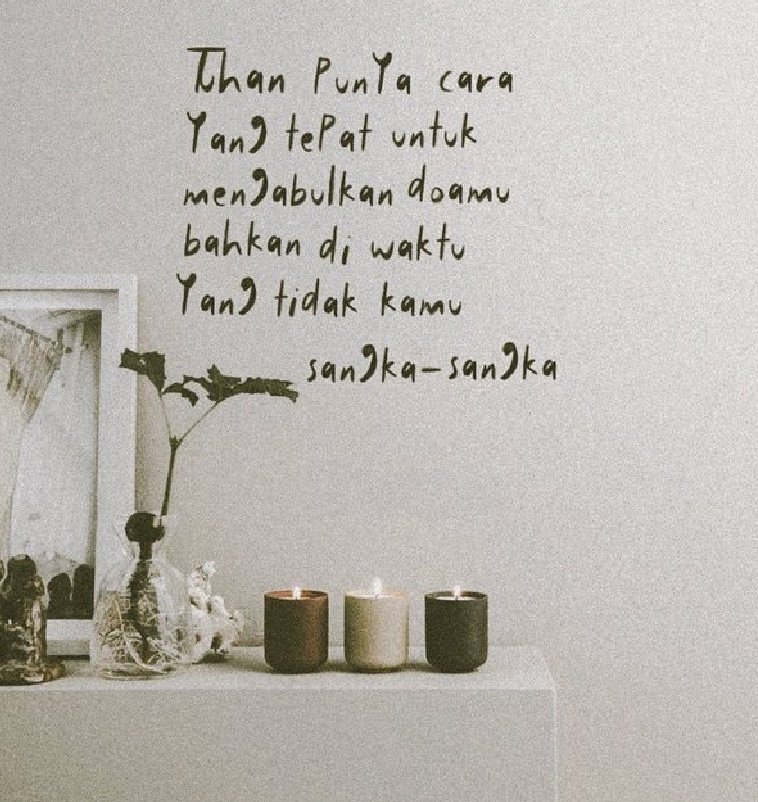 Tuhan punya cara
yang tepat untuk
mengabulkan doamu
bahkan di waktu
yang tidak kamu
sangka-sangka